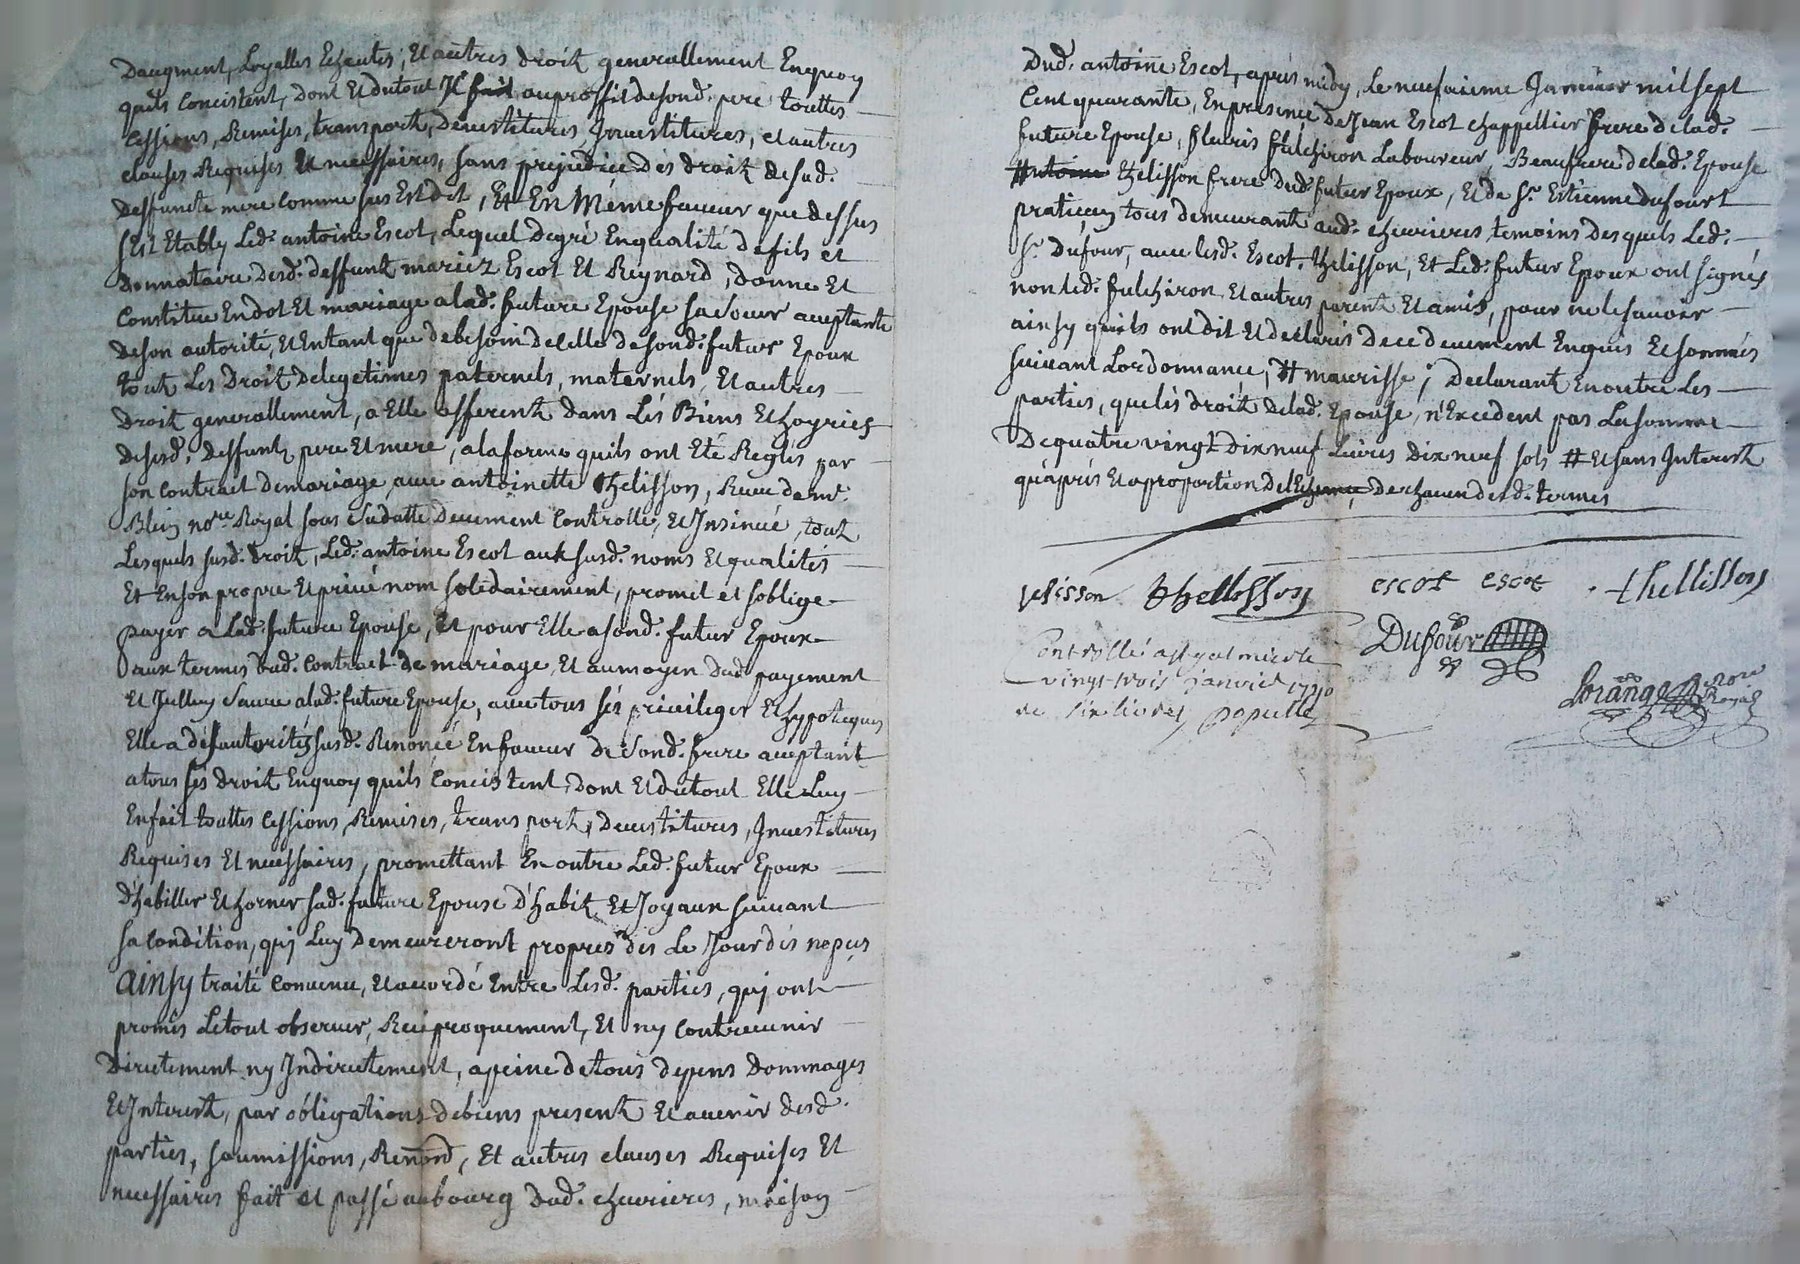 Daugment, Loyalles Echeutes, Et autres droit generallement Enquoy
quils Concistent, dont Et dutout Il fait auproffit desond. pere touttes
Cessions, Remises, transport, Devestitures, Investitures, et autres
clauses Requises Et necessaires, sans prejudice des droit desad.
deffuncte mere comme sus Est dit, Et En Même faveur que dessus
sEst Etably Led. antoine Escot, Lequel degré Enqualité defils et
donnataire desd. deffunt mariez Escot Et Reynard, donne Et
Constitue Endot Et mariage alad. future Epouse sa soeur acceptante
deson autorité, Et Entant que debesoin decelle desond. futur Epoux
tout Les Droit delegetimes paternels, maternels, Et autres
droit generallement, a Elle afferent dans Lés Biens Et hoyries
desesd. deffunt pere Et mere, alaforme quils ont Eté Reglés par
son contract demariage avec antoinette thelisson, Receu de me.
Blein nore. Royal sous sadatte Deuement Controllé, Et Insinué, tout
Lesquels susd. droit, Led. antoine Escot aux susd. noms Et qualités
Et Enson propre Et privé nom solidairement, promet et soblige
payer a Lad. future Epouse, Et pour Elle asond. futur Epoux
aux termes dud. Contract de mariage, Et aumoyen dud. payement
Et Icelluy sauve alad. future Epouse, avec tous sés privileges Et hypoteques
Elle a dés autorités susd. Renoncé Enfaveur de sond. frere acceptant
atous sés droit Enquoy quils concistent, dont Et dutout Elle Luy
Enfait touttes cessions, Remises, transport, devestitures, Investitures
Requises Et necessaires, promettant En outre Led. futur Epoux
d'habiller Et horner sad. future Epouse d'habit Et Joyaux suivant
sa condition, quj Luy demeureront propres dés Le Jour dés nopces
Ainsy traité Convenu, Et accordé Entre Lesd. parties, quj ont
promis Letout observer, Reciproquement, Et ny contrevenir
Directement ny Indirectement, apeine detous depens dommages
Et Interest, par obligations debiens present Et avenir desd.
parties, soumissions, Renond, Et autres clauses Requises Et
necessaires fait et passé aubourg dud. chevrieres, maison
Dud. antoine Escot, aprés midy, Le neufvieme Janvier mil sept
Cent quarante, Enpresence deJean Escot chappellier frere delad.
future Epouse, fleuris fulchiron Laboureur, Beaufrere delad. Epouse
# thelisson frere dud. futur Epoux, Et de Sr. Estienne dufourt
praticien tous demeurant aud. chevrieres temoins desquels Led.
Sr. Dufour, avec lesd. Escot, thelisson, Et Led. futur Epoux ont signés
non led. fulchiron, Et autres parent Et amis, pour ne le savoir
ainsy quils ont dit Et declarés dece deuement Enquis Et sommés
suivant Lordonnance, # maurisse; Declarant En outre Les
parties, que lés droit delad. Epouse, n'Excedent pas Lasomme
De quatre vingt Dix neuf Livres Dix neuf sols # Et sans Interest
qu'aprés Et aproportion del'Echeance, de chacun desd. termes
telisson thellisson escot escot thellisson
Dufour
Controllé a st galmier le
vingt trois Janvier 1740
re six livres
Lorange nore
Royal